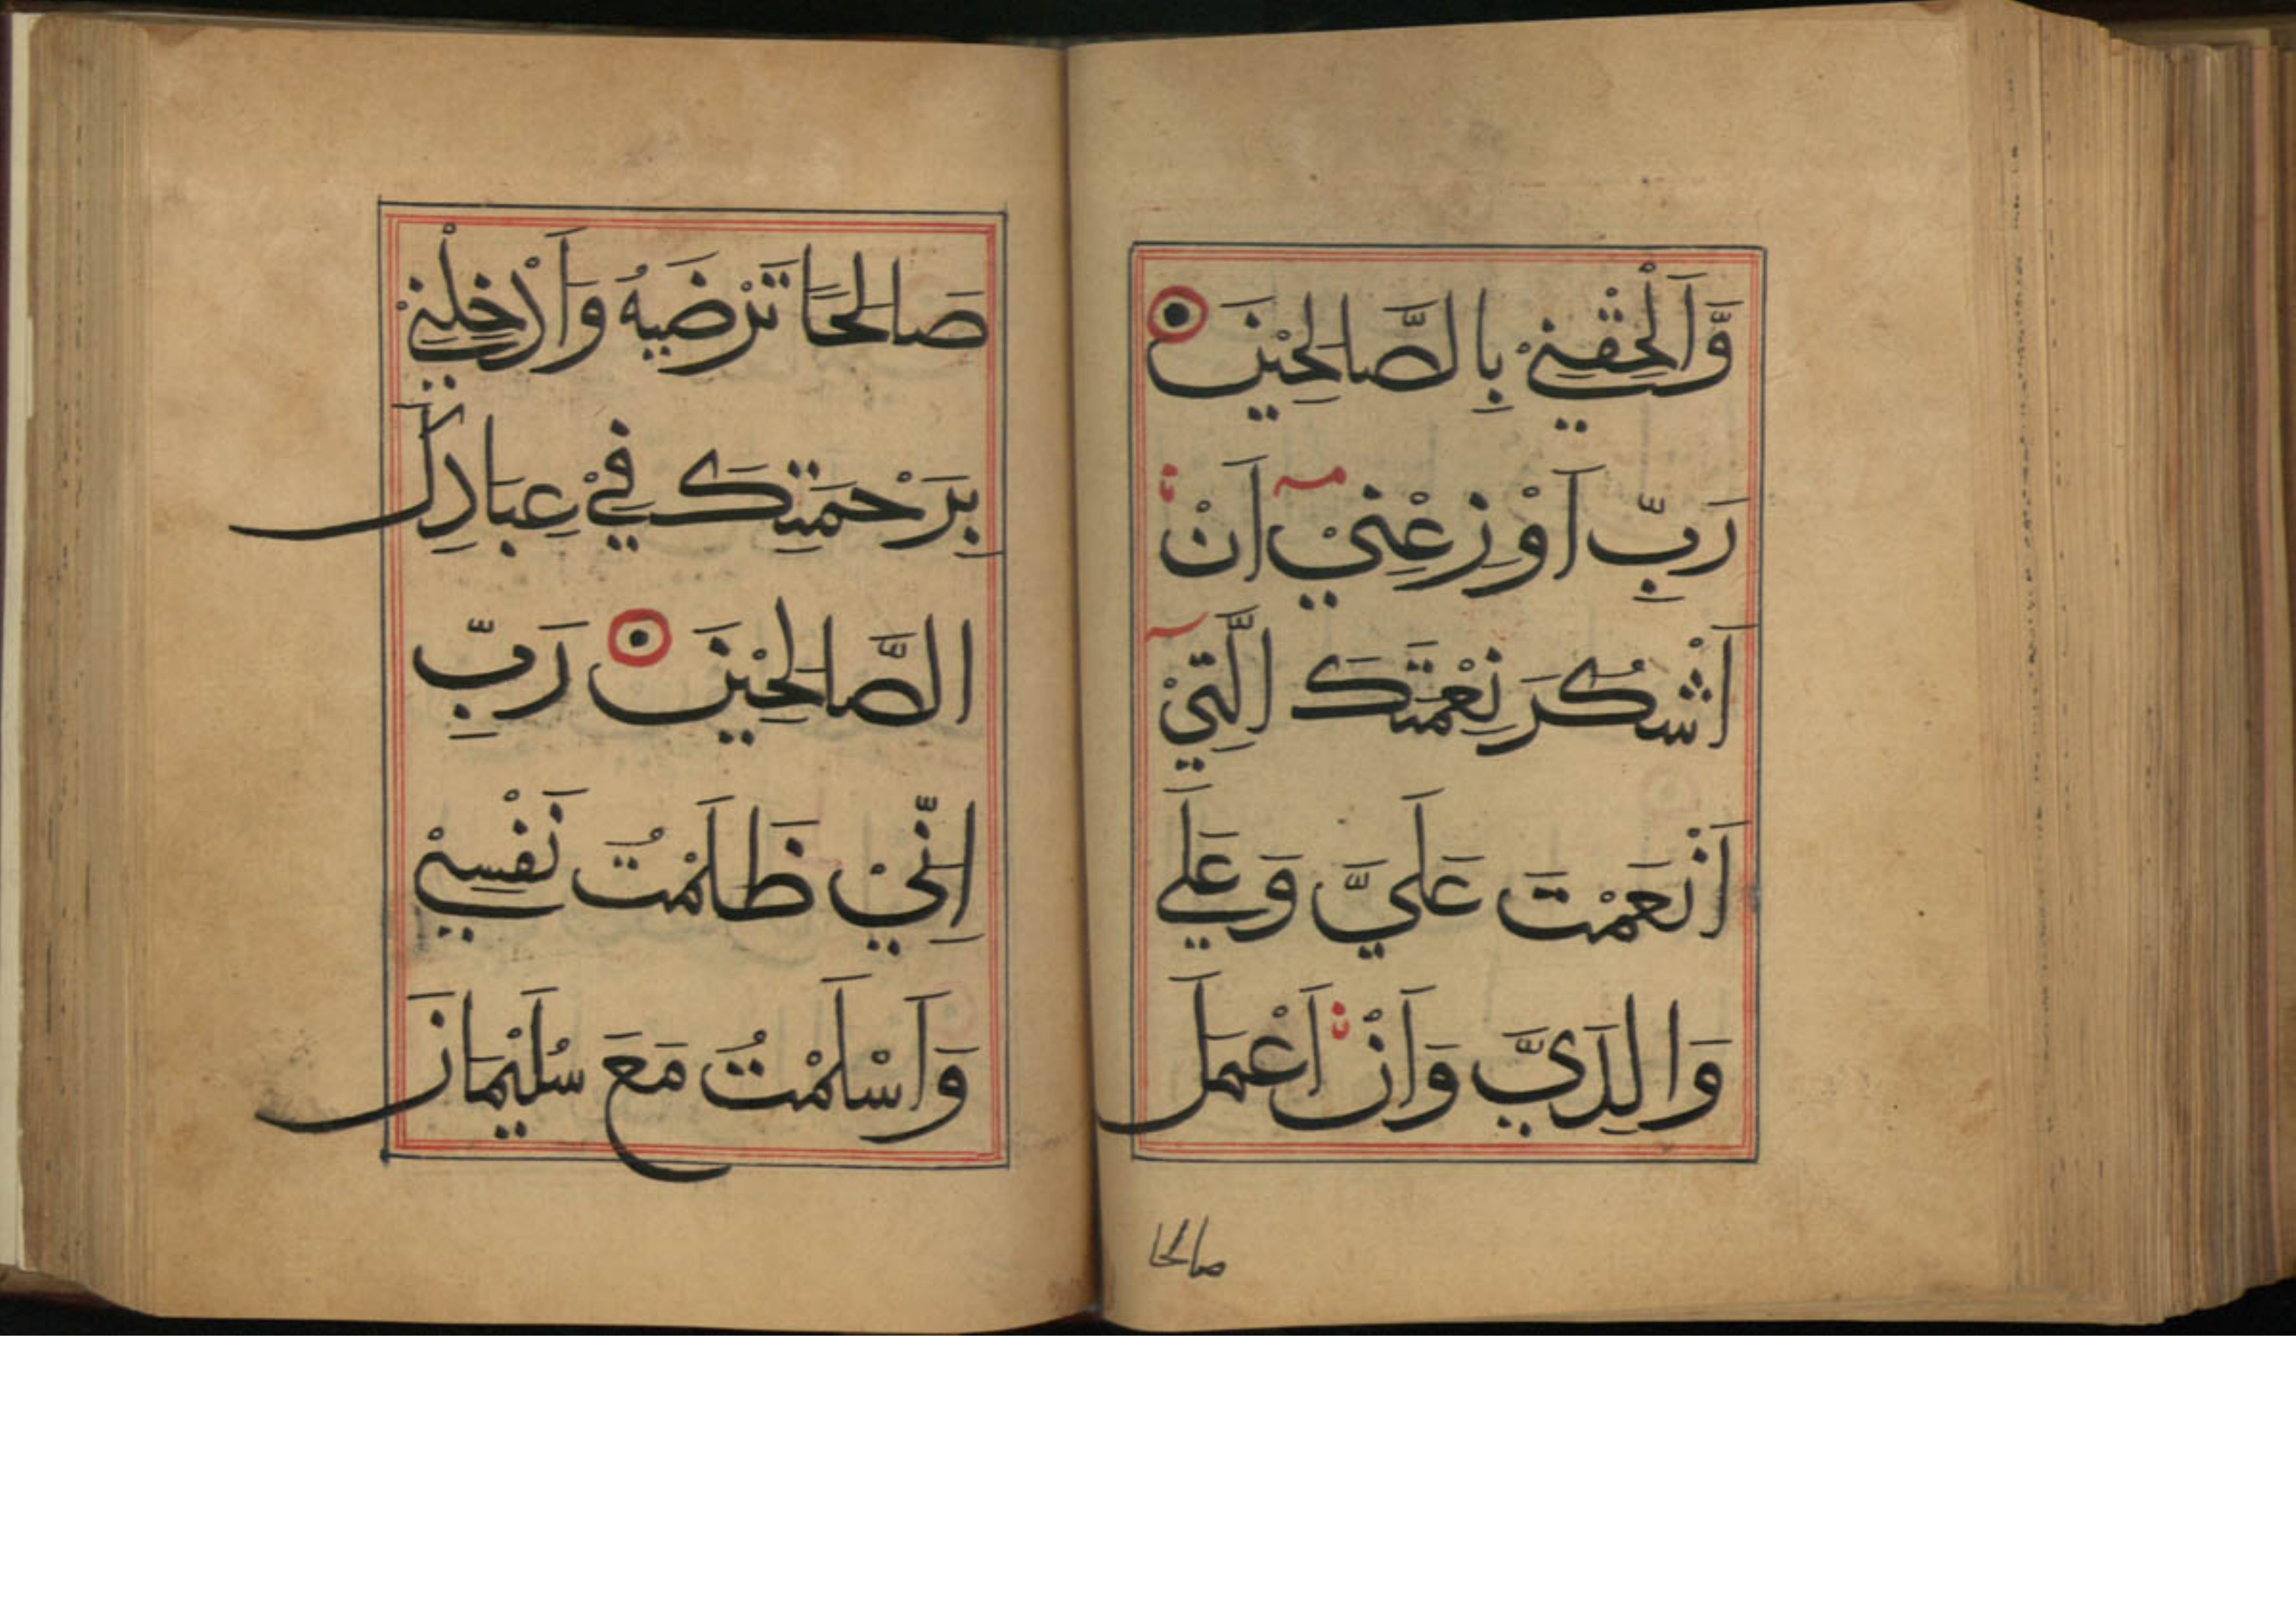 وَّاَلْحِقْنِيْ بِالصَّالِحِيْنَ
رَبِّ اَوْزِعْنِيْ اَنْ
اَشْكُرَ نِعْمَتَكَ الَّتِيْ
اَنْعَمْتَ عَلَيَّ وَعَلَي
وَالِدَيَّ وَاَنْ اَعْمَلَ
صالحا
صَالِحًا تَرْضَيهُ وَاَدْخِلْنِيْ
بِرَحْمَتِكَ فِيْ عِبَادِكَ
الصَّالِحِيْنَ رَبِّ
اِنِّيْ ظَلَمْتُ نَفْسِيْ
وَاَسْلَمْتُ مَعَ سُلَيْمَانَ